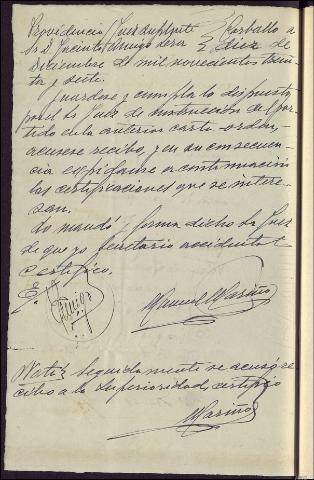 Providencia Juez suplente Carballo a
Sr. D. Jacinto Amigo Leron diez de
Diciembre de mil novecientos trein
ta y siete.
Guardese y cumpla lo dispuesto
por el Sr Juez de instrucción del par
tido en la anterior carta-orden,
acusese recibo, y en su consecuen
cia expidanse a continuación
las certificaciones que se intere
san.
Lo mandó y firma dicho Sr Juez
de que yo Secretario accidental
certifico.
E/
Amigo
Manuel Mariño
Nota/: Seguidamente se acusó re
cibo a la Superioridad, certifico
Mariño